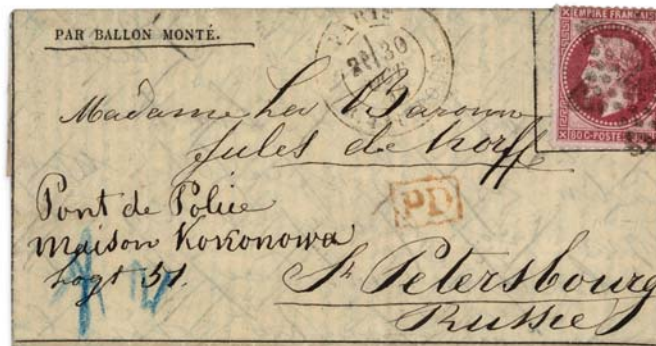 PAR BALLON MONTÉ.
PARIS
30
EMPIRE FRANÇAIS
80 C-POSTE
Madame La Baronne
Jules de Korff
PD
Pont de Police
Maison Kokonowa
Logt 51.
St Petersbourg
Russie